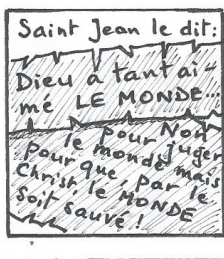 Saint Jean le dit:
Dieu a tant ai-
mé LE MONDE...
pour Non
le monde juger
pour que, par le mais
Christ, le MONDE
soit sauvé !